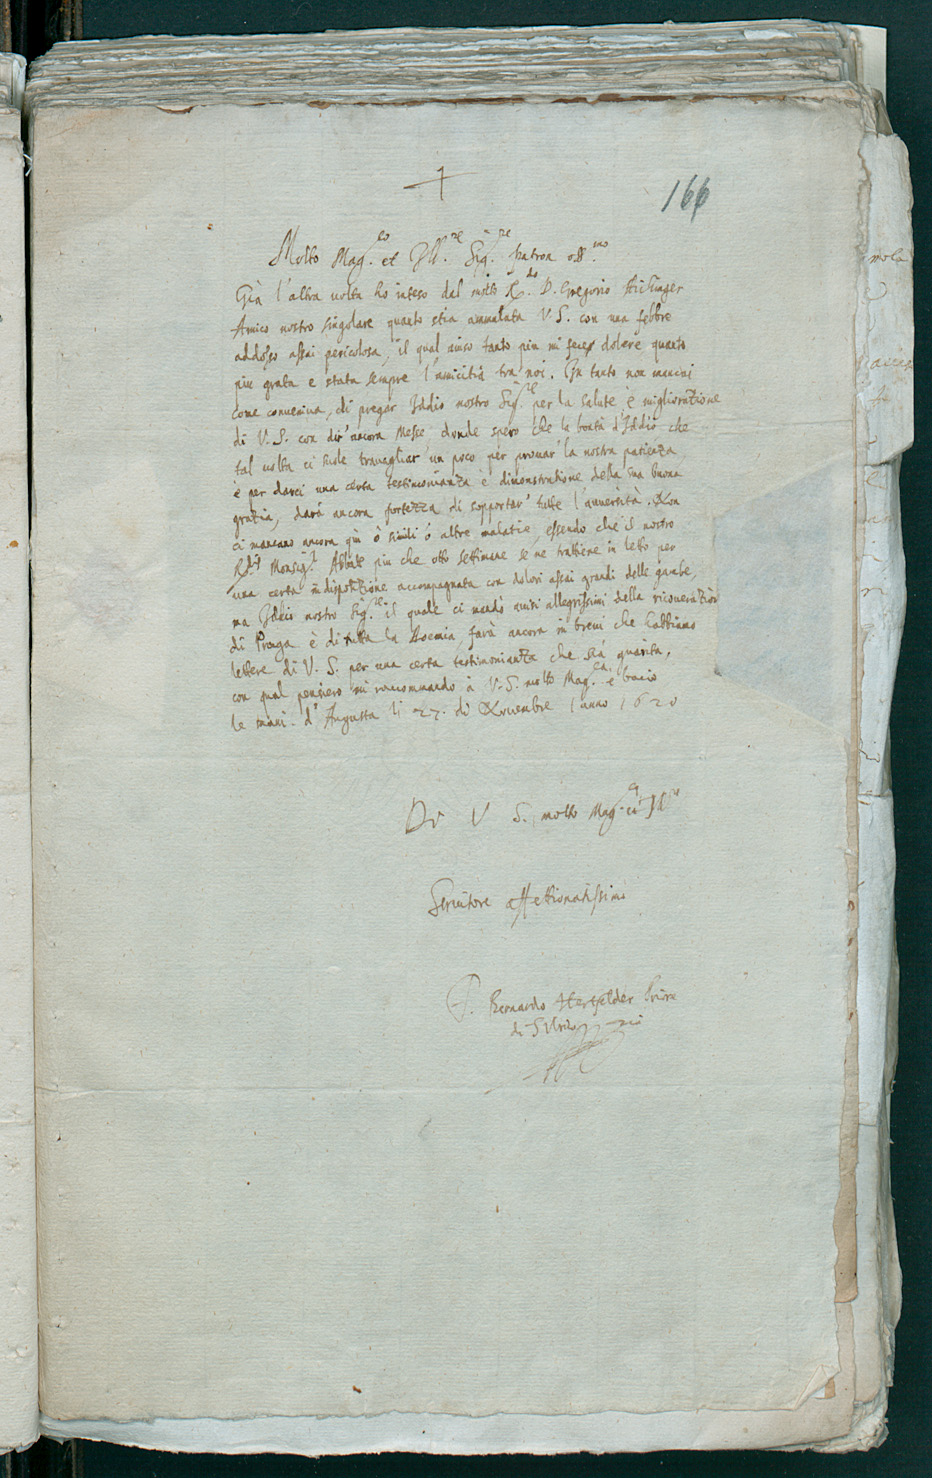 166
Molto Mag.co et Ill.re Sig.re patron oss.mo
Già l'altra uolta ho inteso dal molto R.do D. Gregorio
Amico nostro singolare quanto stia ammalata V.S. con una febbre
addosso assai pericolosa, il qual auiso tanto piu mi fece dolere quanto
piu grata e stata sempre l'amicitia tra noi. In tanto non mancai
come conueniua, di pregar Iddio nostro Sig.re per la salute è miglioratione
di V.S. con dir' ancora Messe, donde spero che la bontà d'Iddio che
tal uolta ci suole trauagliar' un poco per prouar' la nostra patienza,
è per darci una certa testimonianza è dimonstratione della sua buona
gratia, darà ancora fortezza di sopportar' tutte l'auuersità. Non
ci mancano ancora qui ò simili ò altre malatie, essendo che il nostro
R.do Monsig.r Abbate piu che otto settimane se ne trattiene in letto per
una certa indispositione accompagnata con dolori assai grandi delle gambe,
ma Iddio nostro Sig.re il quale ci mandò auisi allegrissimi della ricuperation
di Praga è di tutta la Boemia, farà ancora in breui che habbiamo
lettere di V.S. per una certa testimonianza che sia guarita,
con qual pensiero mi raccommando à V.S. molto Mag.ca è bacio
le mani. d'Augusta li 27. di Nouembre l'anno 1620
Di V S. molto Mag.ca et Ill.re
Seruitore affettionatissimo
F. Bernardo Hertfelder Priore
di S Vdalrico